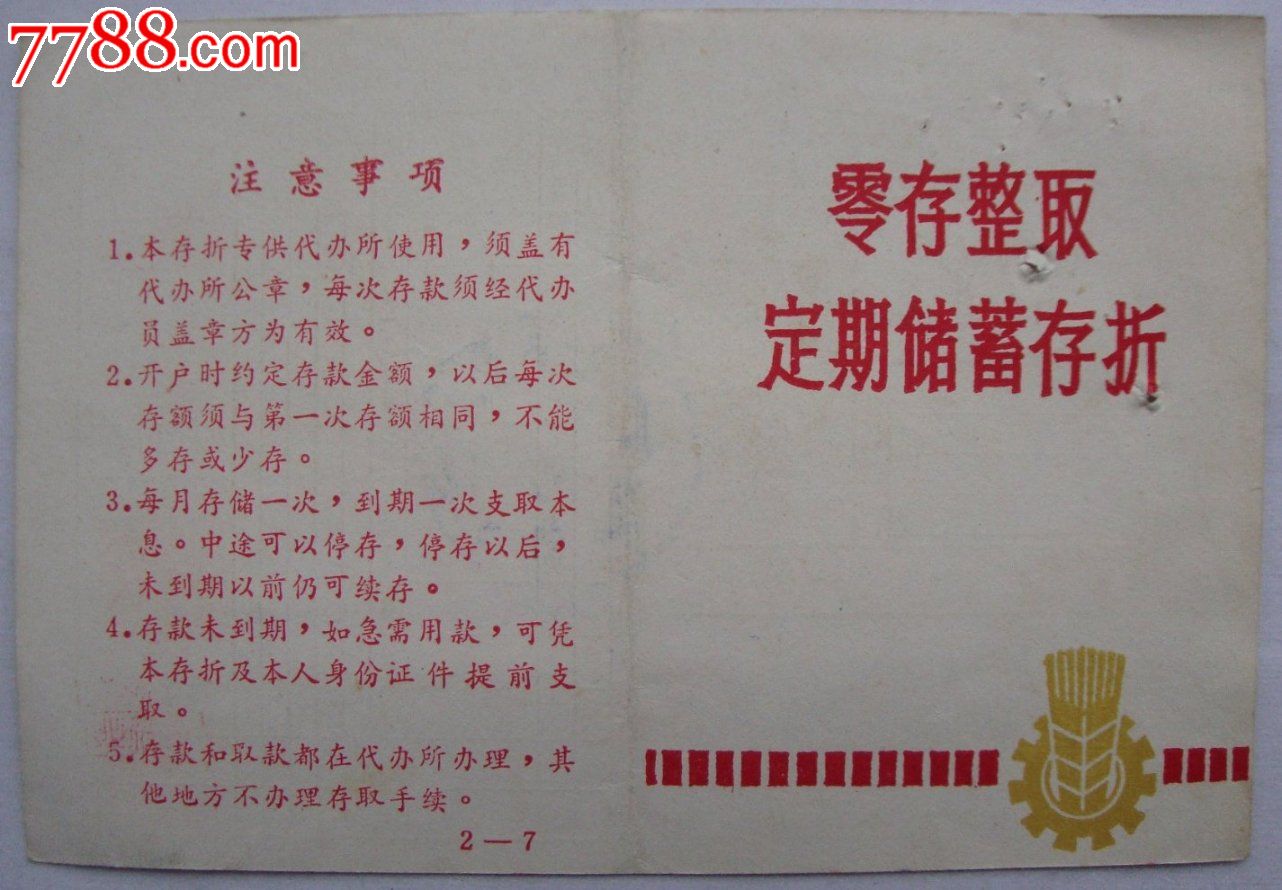 7788.com
注意事项
1.本存折专供代办所使用，须盖有
代办所公章，每次存款须经代办
员盖章方为有效。
2.开户时约定存款金额，以后每次
存额须与第一次存额相同，不能
多存或少存。
3.每月存储一次，到期一次支取本
息。中途可以停存，停存以后，
未到期以前仍可续存。
4.存款未到期，如急需用款，可凭
本存折及本人身份证件提前支
取。
5.存款和取款都在代办所办理，其
他地方不办理存取手续。
2—7
零存整取
定期储蓄存折